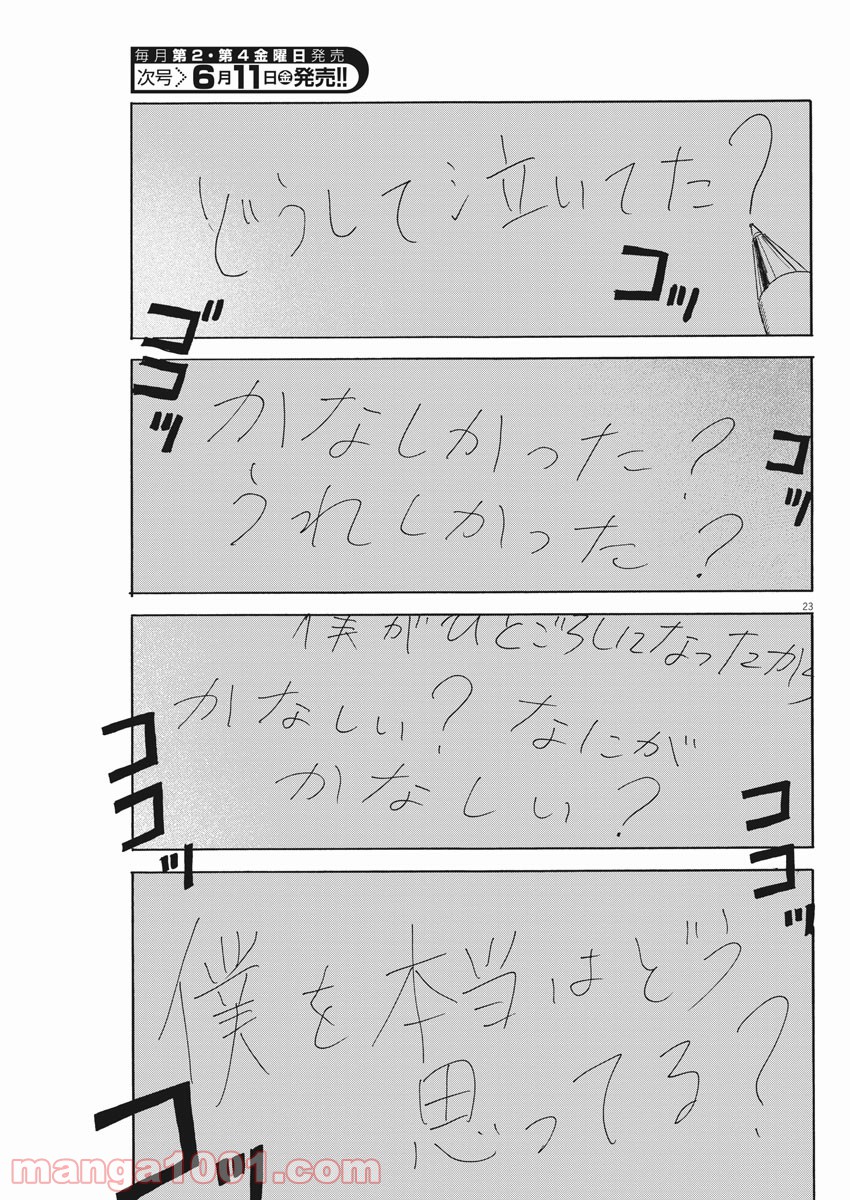 毎月第2・第4金曜日発売
次号＞6月11日㊎発売!!
どうして泣いてた？
コッ
ゴッ
かなしかった？
うれしかった？
コッ
コッ
23
僕がひとごろしになったから
かなしい？なにが
かなしい？
コ
コッ
コ
コッ
僕を本当はどう
思ってる？
ゴッ
manga1001.com